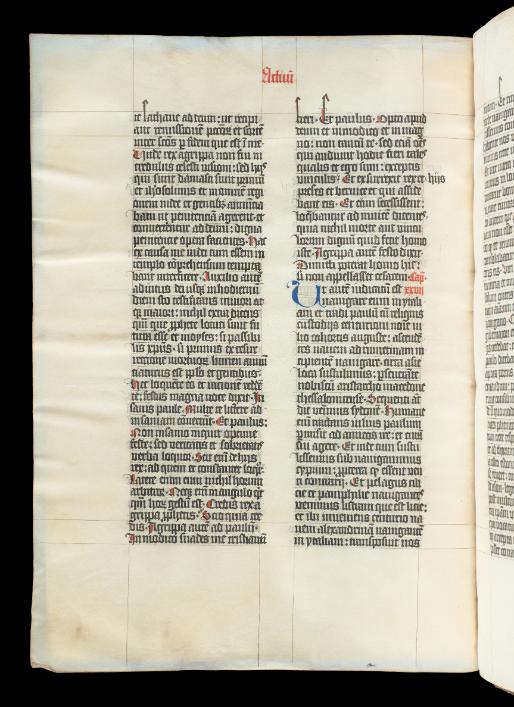 Actuū
te sathane ad deum: ut accipi
ant remissionē pccōꝝ et sortē
inter scōs ꝑ fidem que est ī me·
Unde rex agrippa non fui in
credulus celesti uisioni: sed hijs
qui sunt damasci sunt primū
et iherosolimis et in omnē regi
onem iudee et gentibꝫ annūcia
bam ut penitenciā agerent et
conuerterent ad deum: digna
penitencie opera facientes· Hac
ex causa me iudei cum essem in
templo cōprehensum temptā
bant interficere· Auxilio autē
adiutus dei usqꝫ in hodiernū
diem sto testificans minori at
qꝫ maiori: nichil extra dicens
quā que ꝓphete locuti sunt fu
tura esse et moyses: si passibi
lis xp̄us: si primus ex resur
rectione mortuoꝝ lumen annū
tiaturus est ipso et gentibus·
Hec loquēte eo et racionē reddē
te: festus magna uoce dixit· In
sanis paule· Multe te littere ad
insaniam cōuertūt· Et paulus:
Non insanio inquit optime
feste: sed ueritatis et sobrietatis
verba loquor· Scit enī de hijs
rex: ad quem et constanter loqͬ·
Latere enim eum nichil horum
arbitror· Neqꝫ enī in angulo qͥc
quā hoꝝ gestū est· Credis rex a
grippa ꝓphetis· Scio quia cre
dis· Agrippa autē ad paulū:
In modico suades me cristianū
fieri· Et paulus· Opto apud
deum et in modico et in mag
no: non tantū te· sed etiā oēs
qui audiunt hodie fieri tales
qualis et ego sum: exceptis
vinculis· Et exsurrexit rex et
preses et bernice et qui asside
bant eis· Et cum secessissent:
loquebantur ad inuicē dicentes·
quia nichil morte aut vincu
lorum dignū quid fecit homo
iste· Agrippa autē festo dixit·
Dimitti poterat homo hic:
si non appellasset cesarem· Cap̄·
Ut autē iudicatū est xxvij
eum navigare in ytali
am et tradi paulū cū reliquis
custodijs centurioni noīe iu
lio cohortis auguste: ascendē
tes nauem adrumetinam in
cipientē nauigare circa asie
loca sustulimus: ꝑseuerāte
nobiscū aristarcho macedone
thessalonicense· Sequenti aūt
die venimus sydonē· Humane
autē tractans iulius paulum
ꝑmisit ad amicos ire: et curā
sui agere· Et inde cum sustu
lissemus subnauigauimus
cyprum: ꝓpterea qꝫ essent ven
ti contrarij· Et pelagus cili
cie et pamphilie nauigantes
venimus listram que est licie:
et ibi inueniens centurio na
uem alexandrinā nauigantē
in ytaliam: transposuit nos